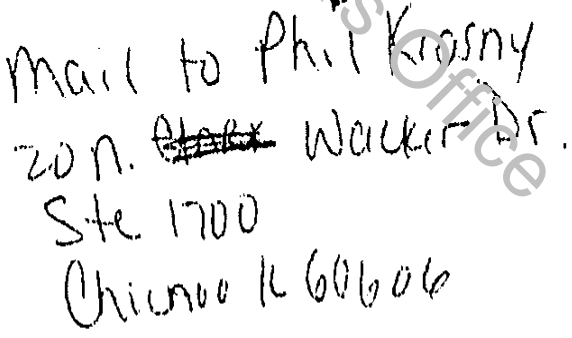 Mail to Phil Krasny
20 N. Wacker Dr.
Ste 1700
Chicago IL 60606
s Office